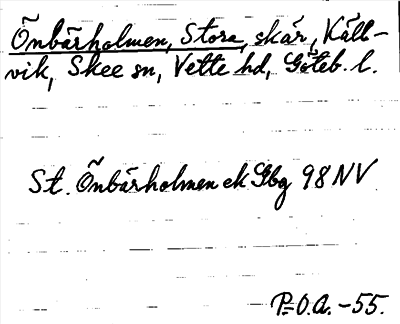 Önbärholmen, Stora, skär, Käll-
vik, Skee sn, Vette hd, Göteb. l.
St. Önbärholmen ek Gbg 98 NV
P.O.A. -55.